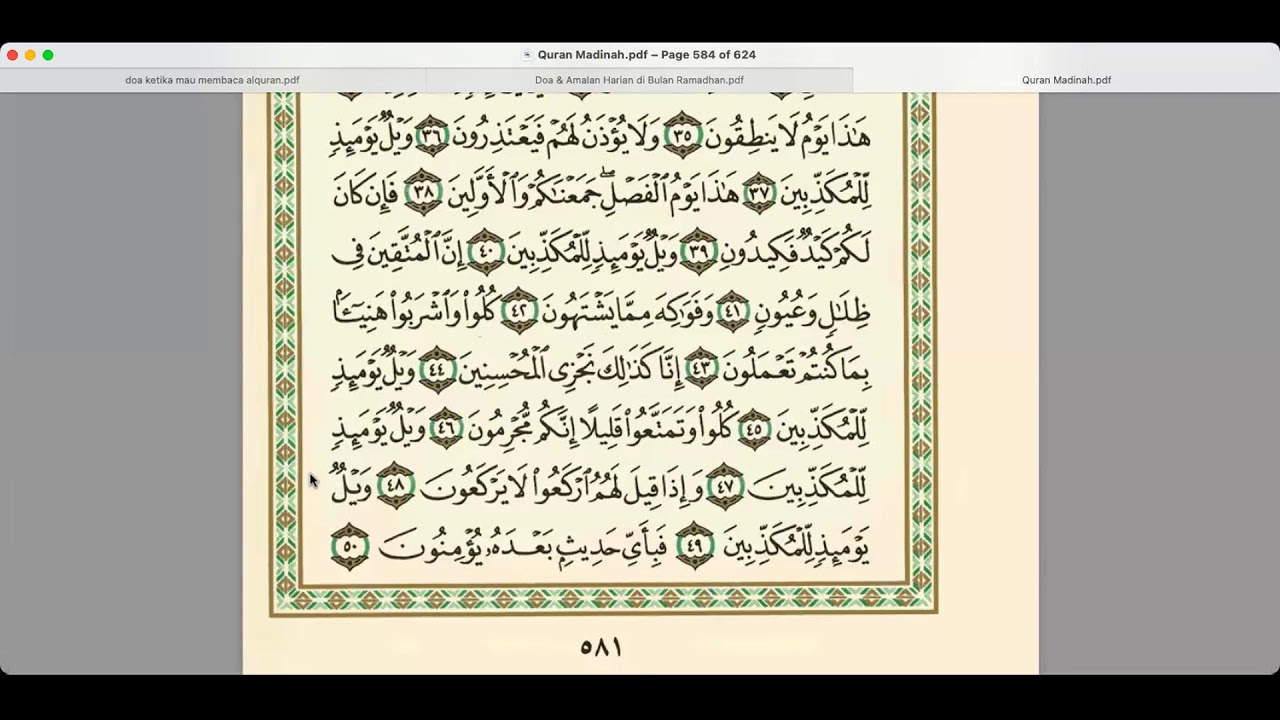 Quran Madinah.pdf – Page 584 of 624
doa ketika mau membaca alquran.pdf
Doa & Amalan Harian di Bulan Ramadhan.pdf
Quran Madinah.pdf
هَٰذَا يَوْمُ لَا يَنطِقُونَ ٣٥ وَلَا يُؤْذَنُ لَهُمْ فَيَعْتَذِرُونَ ٣٦ وَيْلٌ يَوْمَئِذٍ
لِّلْمُكَذِّبِينَ ٣٧ هَٰذَا يَوْمُ ٱلْفَصْلِ ۖ جَمَعْنَٰكُمْ وَٱلْأَوَّلِينَ ٣٨ فَإِن كَانَ
لَكُمْ كَيْدٌ فَكِيدُونِ ٣٩ وَيْلٌ يَوْمَئِذٍ لِّلْمُكَذِّبِينَ ٤٠ إِنَّ ٱلْمُتَّقِينَ فِى
ظِلَٰلٍ وَعُيُونٍ ٤١ وَفَوَٰكِهَ مِمَّا يَشْتَهُونَ ٤٢ كُلُوا۟ وَٱشْرَبُوا۟ هَنِيٓـًٔۢا
بِمَا كُنتُمْ تَعْمَلُونَ ٤٣ إِنَّا كَذَٰلِكَ نَجْزِى ٱلْمُحْسِنِينَ ٤٤ وَيْلٌ يَوْمَئِذٍ
لِّلْمُكَذِّبِينَ ٤٥ كُلُوا۟ وَتَمَتَّعُوا۟ قَلِيلًا إِنَّكُم مُّجْرِمُونَ ٤٦ وَيْلٌ يَوْمَئِذٍ
لِّلْمُكَذِّبِينَ ٤٧ وَإِذَا قِيلَ لَهُمُ ٱرْكَعُوا۟ لَا يَرْكَعُونَ ٤٨ وَيْلٌ
يَوْمَئِذٍ لِّلْمُكَذِّبِينَ ٤٩ فَبِأَىِّ حَدِيثٍۭ بَعْدَهُۥ يُؤْمِنُونَ ٥٠
٥٨١